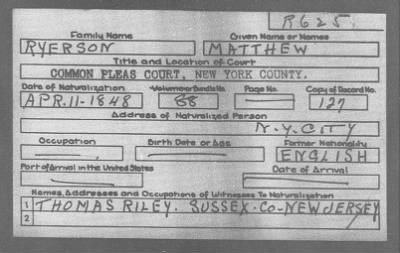 R625.
Family Name Given Name or Names
RYERSON MATTHEW
Title and Location of Court
COMMON PLEAS COURT, NEW YORK COUNTY.
Date of Naturalization Volume or Bundle No. Page No. Copy of Record No.
APR. 11-1848 88 — 127
Address of Naturalized Person
N.Y. CITY
Occupation Birth Date or Age Former Nationality
— — ENGLISH
Port of Arrival in the United States Date of Arrival
— —
Names, Addresses and Occupations of Witnesses To Naturalization
1 THOMAS RILEY. SUSSEX-CO-NEW JERSEY
2